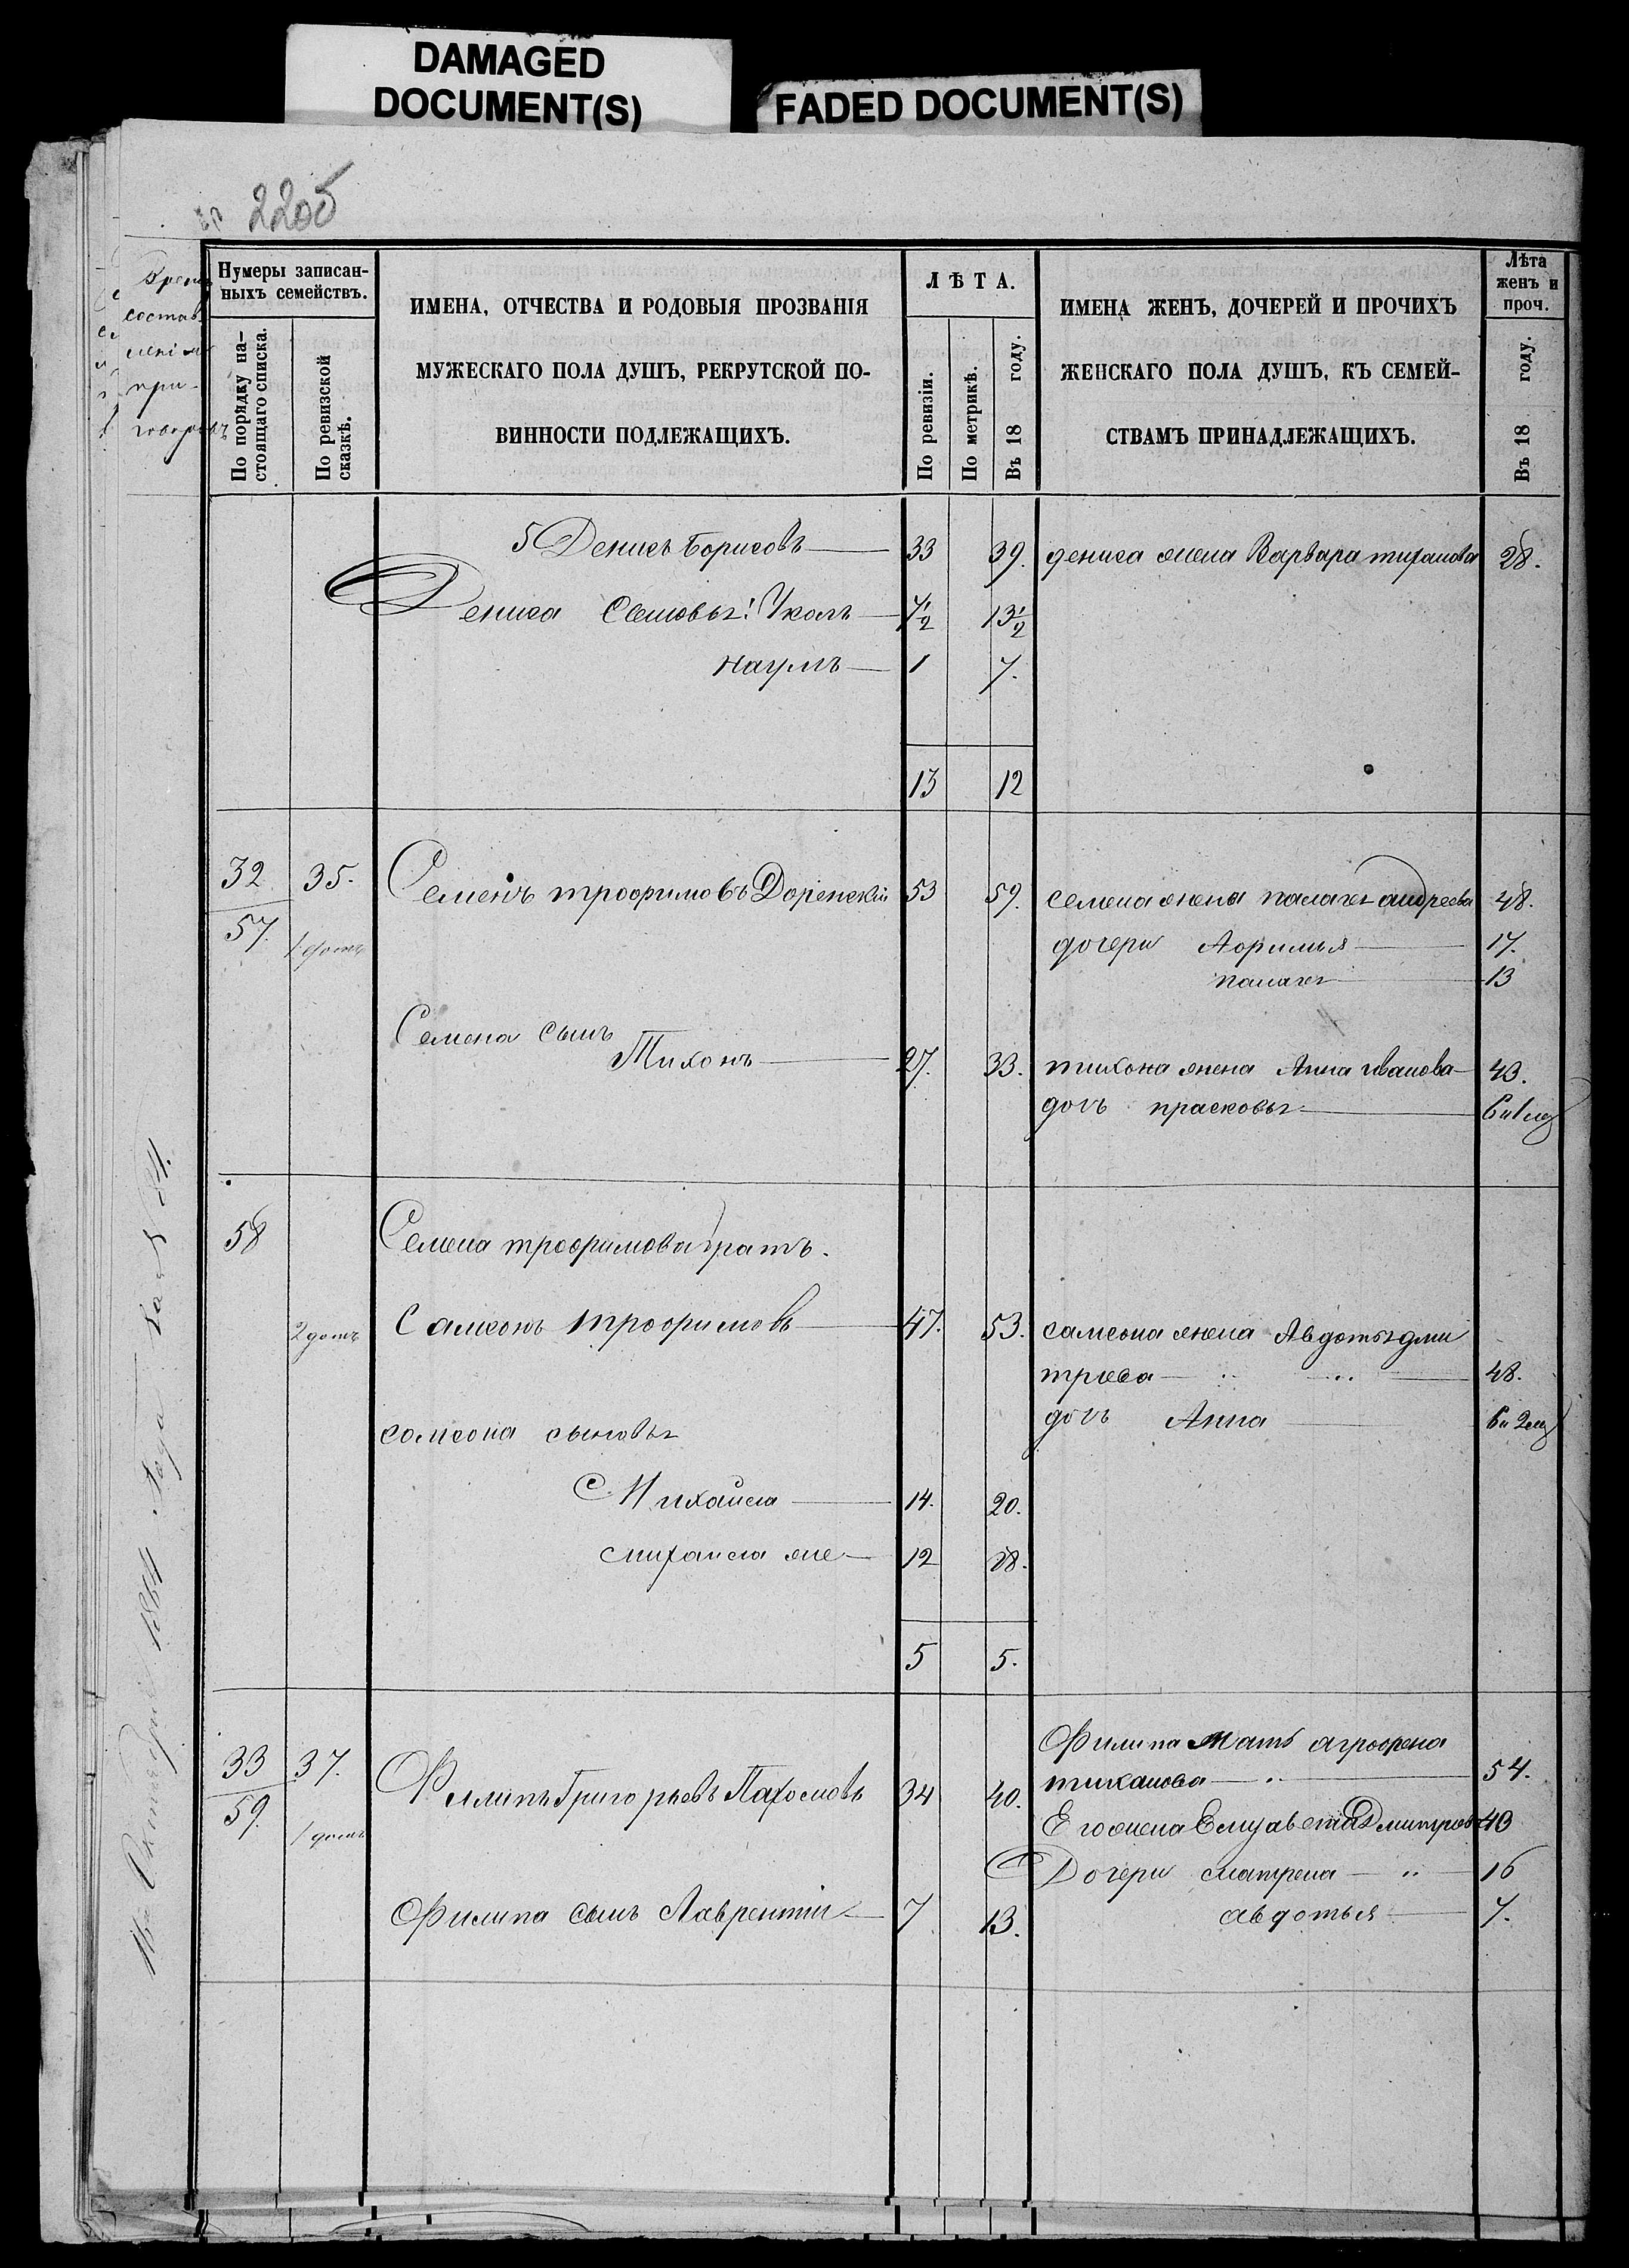 DAMAGED
DOCUMENT(S)
FADED DOCUMENT(S)
2205
Нумеры записан-
ныхъ семействъ.
По порядку на-
стоящаго списка.
По ревизской
сказкѣ.
ИМЕНА, ОТЧЕСТВА И РОДОВЫЯ ПРОЗВАНІЯ
МУЖЕСКАГО ПОЛА ДУШЪ, РЕКРУТСКОЙ ПО-
ВИННОСТИ ПОДЛЕЖАЩИХЪ.
ЛѢТА.
По ревизіи.
По метрикѣ.
Въ 18 году.
ИМЕНА ЖЕНЪ, ДОЧЕРЕЙ И ПРОЧИХЪ
ЖЕНСКАГО ПОЛА ДУШЪ, КЪ СЕМЕЙ-
СТВАМЪ ПРИНАДЛЕЖАЩИХЪ.
Лѣта
женъ и
проч.
Въ 18 году.
5 Денисъ Борисовъ 33 39. дениса жена Варвара тиханова 28.
Дениса 7 1/2 13 1/2
наумъ 1 7.
13 12
32 35. Семенъ трофимовъ 53 59. семена жена палагея андреева 48.
57. 1 домъ дочери 17.
палагея 13
Семена сынъ
Тихонъ 27. 33. тихона жена Анна иванова 43.
дочь прасковья
58 Семена трофимова братъ.
2 домъ Самсонъ трофимовъ 47. 53. самсона жена Авдотья дми
триева 48.
дочь Анна
самсона сыновья
Михайла 14. 20.
михаила же 12 18.
5 5.
Филипа мать агрофена
33 37. Филипъ Григорьевъ Пахомовъ 34 40. тиханова 54.
59. 1 домъ Его жена Елизавета 40
Дочери матрена 16
Филипа сынъ Лаврентии 7 13. авдотья 7.